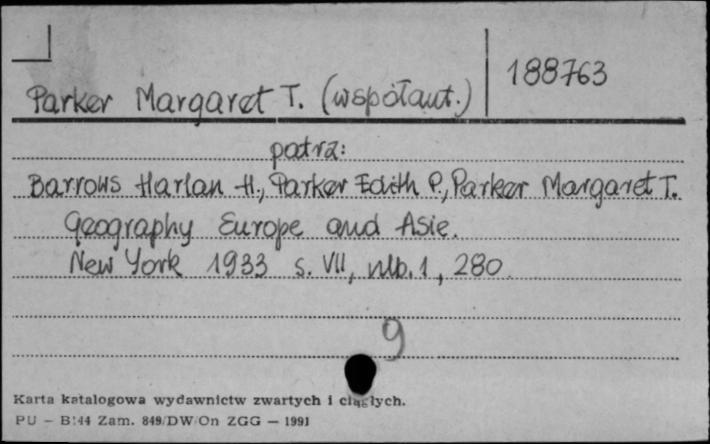 Parker Margaret T. (współaut.) 188763
patrz:
Barrows Harlan H., Parker Edith P., Parker Margaret T.
Geography Europe and Asie.
New York 1933 s. VII, nlb. 1, 280
9
Karta katalogowa wydawnictw zwartych i ciągłych.
PU – B/44 Zam. 849/DW/On ZGG – 1991